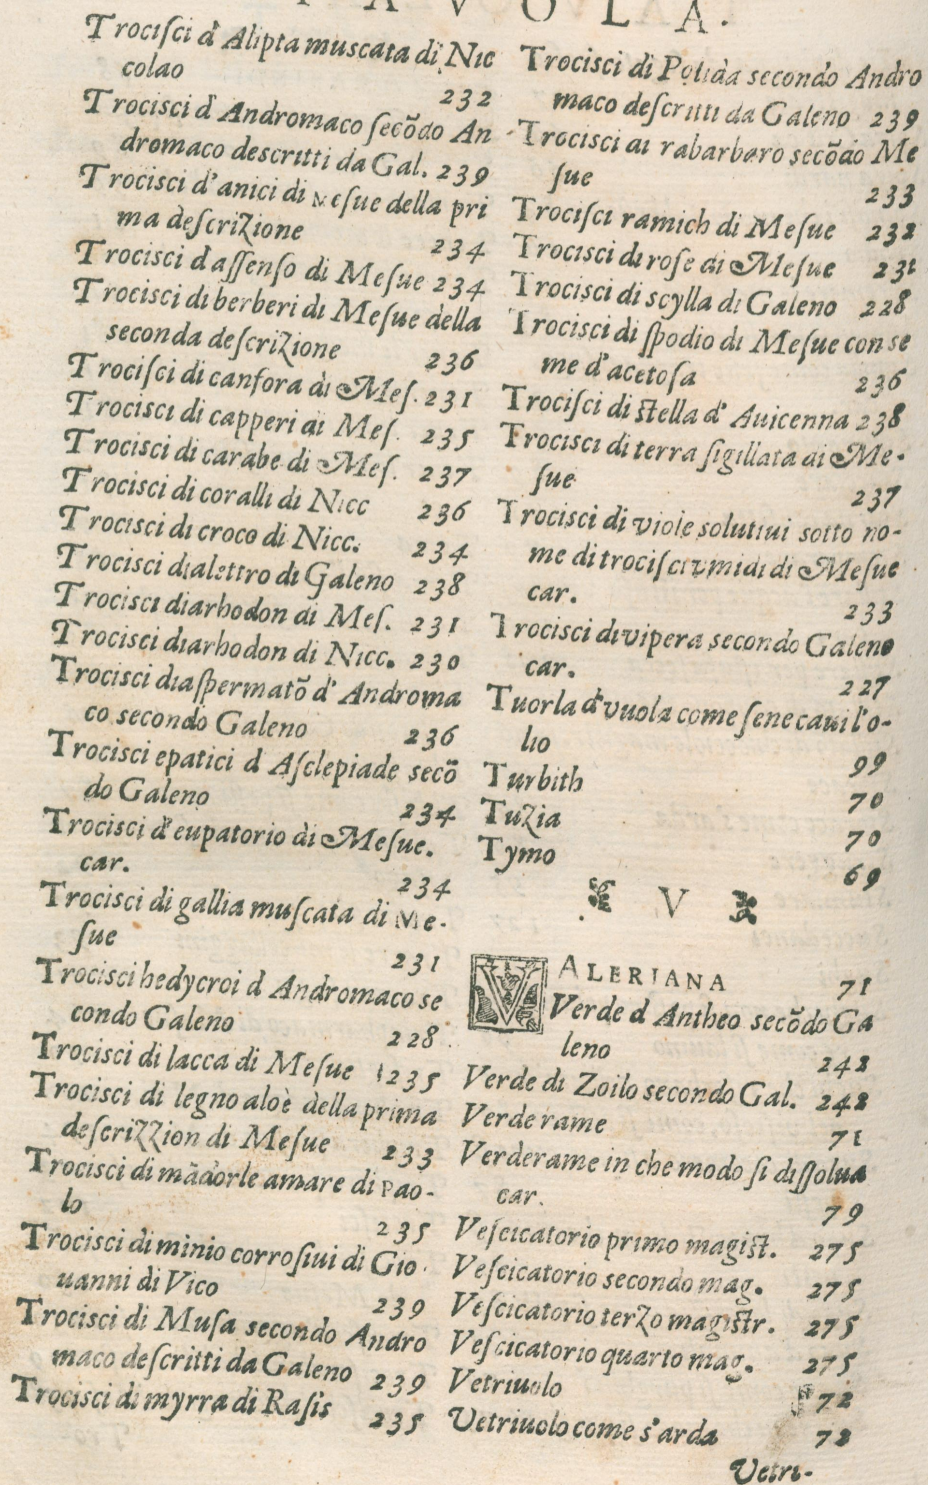 TAVOLA.
Trociſci d'Alipta muscata di Nic
colao 232
Trocisci d'Andromaco ſecōdo An
dromaco descritti da Gal. 239
Trocisci d'anici di Meſue della pri
ma deſcriZione 234
Trocisci d'aſſenſo di Meſue 234
Trocisci di berberi di Meſue della
seconda deſcriZione 236
Trociſci di canfora di Meſ. 231
Trocisci di capperi di Meſ. 235
Trocisci di carabe di Meſ. 237
Trocisci di coralli di Nicc 236
Trocisci di croco di Nicc. 234
Trocisci dialettro di Galeno 238
Trocisci diarhodon di Meſ. 231
Trocisci diarhodon di Nicc. 230
Trocisci diaſpermatō d'Androma
co secondo Galeno 236
Trocisci epatici d'Aſclepiade secō
do Galeno 234
Trocisci d'eupatorio di Meſue.
car. 234
Trocisci di gallia muſcata di Me-
ſue 231
Trocisci hedycroi d'Andromaco se
condo Galeno 228
Trocisci di lacca di Meſue 235
Trocisci di legno aloè della prima
deſcriZZion di Meſue 233
Trocisci di mādorle amare di Pao-
lo 235
Trocisci di minio corroſiui di Gio
uanni di Vico 239
Trocisci di Muſa secondo Andro
maco deſcritti da Galeno 239
Trocisci di myrra di Raſis 235
Trocisci di Polida secondo Andro
maco deſcritti da Galeno 239
Trocisci di rabarbaro secōdo Me
ſue 233
Trociſci ramich di Meſue 232
Trocisci di roſe di Meſue 231
Trocisci di scylla di Galeno 228
Trocisci di ſpodio di Meſue con se
me d'acetoſa 236
Trociſci di ſtella d'Auicenna 238
Trocisci di terra ſigillata di Me-
ſue 237
Trocisci di viole solutiui sotto no-
me di trociſci vmidi di Meſue
car. 233
Trocisci di vipera secondo Galeno
car. 227
Tuorla d'vuola come ſene caui l'o-
lio 99
Turbith 70
TuZia 70
Tymo 69
V
VALERIANA 71
Verde d'Antheo secōdo Ga
leno 242
Verde di Zoilo secondo Gal. 242
Verde rame 71
Verderame in che modo ſi diſſolua
car. 79
Veſcicatorio primo magiſt. 275
Veſcicatorio secondo mag. 275
Veſcicatorio terZo magiſtr. 275
Veſcicatorio quarto mag. 275
Vetriuolo 72
Vetriuolo come s'arda 72
Vetri-